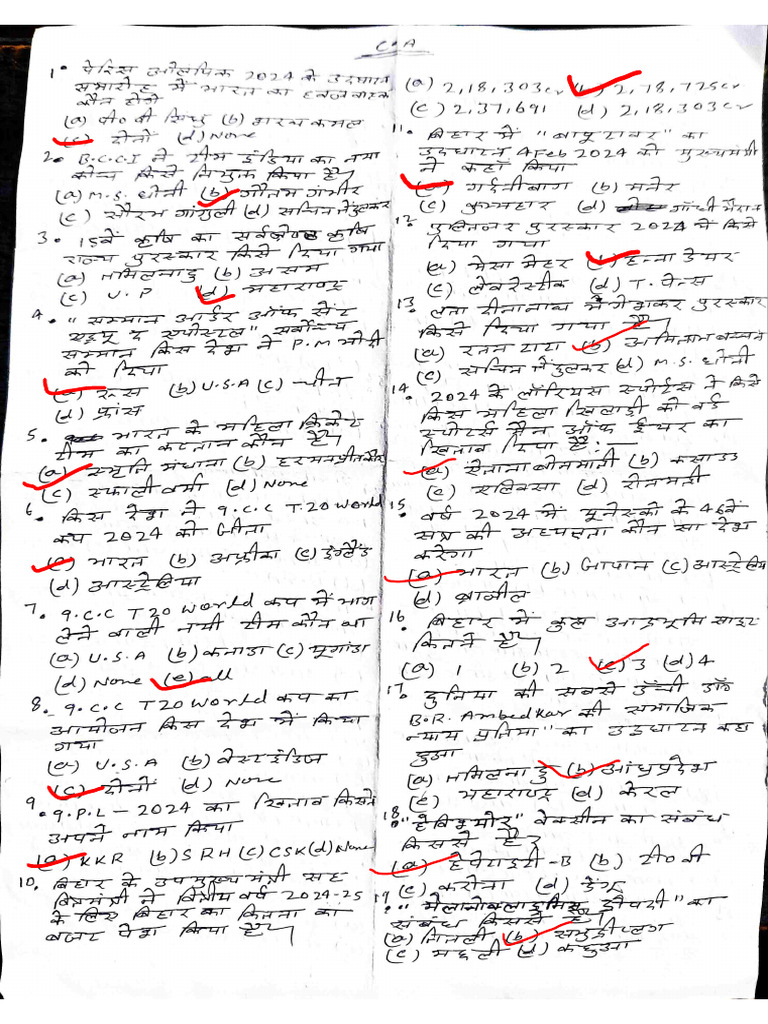 C.A
1. पेरिस ओलंपिक 2024 के उदघाटन
समारोह में भारत का ध्वजवाहक
कौन होंगे
(a) पी० वी सिन्धु (b) शरथ कमल
(c) दोनों (d) None
2. B.C.C.I ने टीम इंडिया का नया
कोच किसे नियुक्त किया है?
(a) M.S. धोनी (b) गौतम गंभीर
(c) सौरभ गांगुली (d) सचिन तेंदुलकर
3. 15वें कृषि का सर्वश्रेष्ठ कृषि
राज्य पुरस्कार किसे दिया गया
(a) तमिलनाडु (b) असम
(c) U.P (d) महाराष्ट्र
4. "सम्मान आर्डर ऑफ सेंट
एंड्रयू द एपोस्टल" सर्वोच्च
सम्मान किस देश ने P.M मोदी
को दिया
(a) रूस (b) U.S.A (c) चीन
(d) फ्रांस
5. भारत के महिला क्रिकेट
टीम का कप्तान कौन है?
(a) स्मृति मंधाना (b) हरमनप्रीत कौर
(c) स्फाली वर्मा (d) None
6. किस देश ने I.C.C T.20 World
कप 2024 को जीता
(a) भारत (b) अफ्रीका (c) इंग्लैंड
(d) आस्ट्रेलिया
7. I.C.C T20 World कप में भाग
लेने वाली नयी टीम कौन था
(a) U.S.A (b) कनाडा (c) यूगांडा
(d) None (e) all
8. I.C.C T20 World कप का
आयोजन किस देश में किया
गया
(a) U.S.A (b) वेस्टइंडिज
(c) दोनों (d) None
9. I.P.L - 2024 का खिताब किसने
अपने नाम किया
(a) KKR (b) SRH (c) CSK (d) None
10. बिहार के उपमुख्यमंत्री सह
वित्तमंत्री ने वित्तीय वर्ष 2024-25
के लिए बिहार का कितना का
बजट पेश किया है?
(a) 2,18,303cr 2,78,725cr
(c) 2,37,691 (d) 2,18,303cr
11. बिहार में "बापू टावर" का
उदघाटन 4 Feb 2024 को मुख्यमंत्री
ने कहाँ किया
(a) गर्दनीबाग (b) मनेर
(c) कुम्हरार (d) गाँधी मैदान
12. पुलित्जर पुरस्कार 2024 में किसे
दिया गया
(a) मेसा मेहर (b) हन्ना ड्रेयर
(c) लेवरेस्टीक (d) T. पेन्स
13. लता दीनानाथ मंगेशकर पुरस्कार
किसे दिया गया है?
(a) रतन टाटा (b) अमिताभ बच्चन
(c) सचिन तेंदुलकर (d) M.S. धोनी
14. 2024 के लॉरियस स्पोर्ट्स ने किसे
किस महिला खिलाड़ी को वर्ल्ड
स्पोर्टस मैन ऑफ द ईयर का
खिताब दिया है:—
(a) सेनाना बोनमाती (b) कसाडड
(c) एलिक्सा (d) रोनमती
15. वर्ष 2024 में यूनेस्को के 46वें
सत्र की अध्यक्षता कौन सा देश
करेगा
(a) भारत (b) जापान (c) आस्ट्रेलिया
(d) ब्राजील
16. बिहार में कुल आद्रभूमि साइट
कितने है?
(a) 1 (b) 2 (c) 3 (d) 4
17. दुनिया की सबसे ऊँची डॉ०
B.R. Ambedkar की समाजिक
न्याय प्रतिमा" का उदघाटन कहा
हुआ
(a) तमिलनाडु (b) आंध्रप्रदेश
(c) महाराष्ट्र (d) केरल
18. "हेविश्योर" वैक्सीन का संबंध
किससे है?
(a) हेपेटाइटी-B (b) टी० वी
(c) करोना (d) डेंगू
19. "मेलानोक्लामिस द्रौपदी" का
संबंध किससे है?
(a) तितली (b) समुद्री प्लग
(c) मछली (d) कछुआ